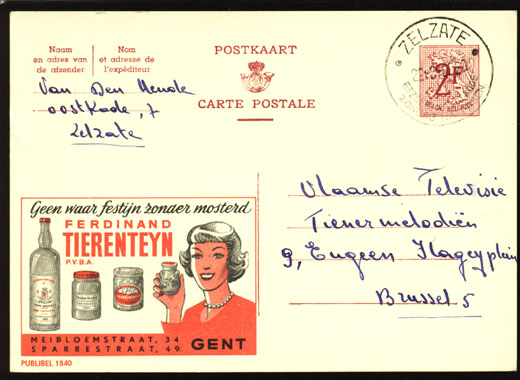 Naam
en adres van
de afzender
Nom
et adresse de
l'expéditeur
POSTKAART
CARTE POSTALE
ZELZATE
2F
Van Den Hende
oostkade, 7
Zelzate
Geen waar festijn zonder mosterd
FERDINAND
TIERENTEYN
P.V.B.A.
MEIBLOEMSTRAAT, 34
SPARRESTRAAT, 49
GENT
PUBLIBEL 1840
Vlaamse Televisie
Tienermelodiën
9, Eugeen Flageyplein
Brussel 5